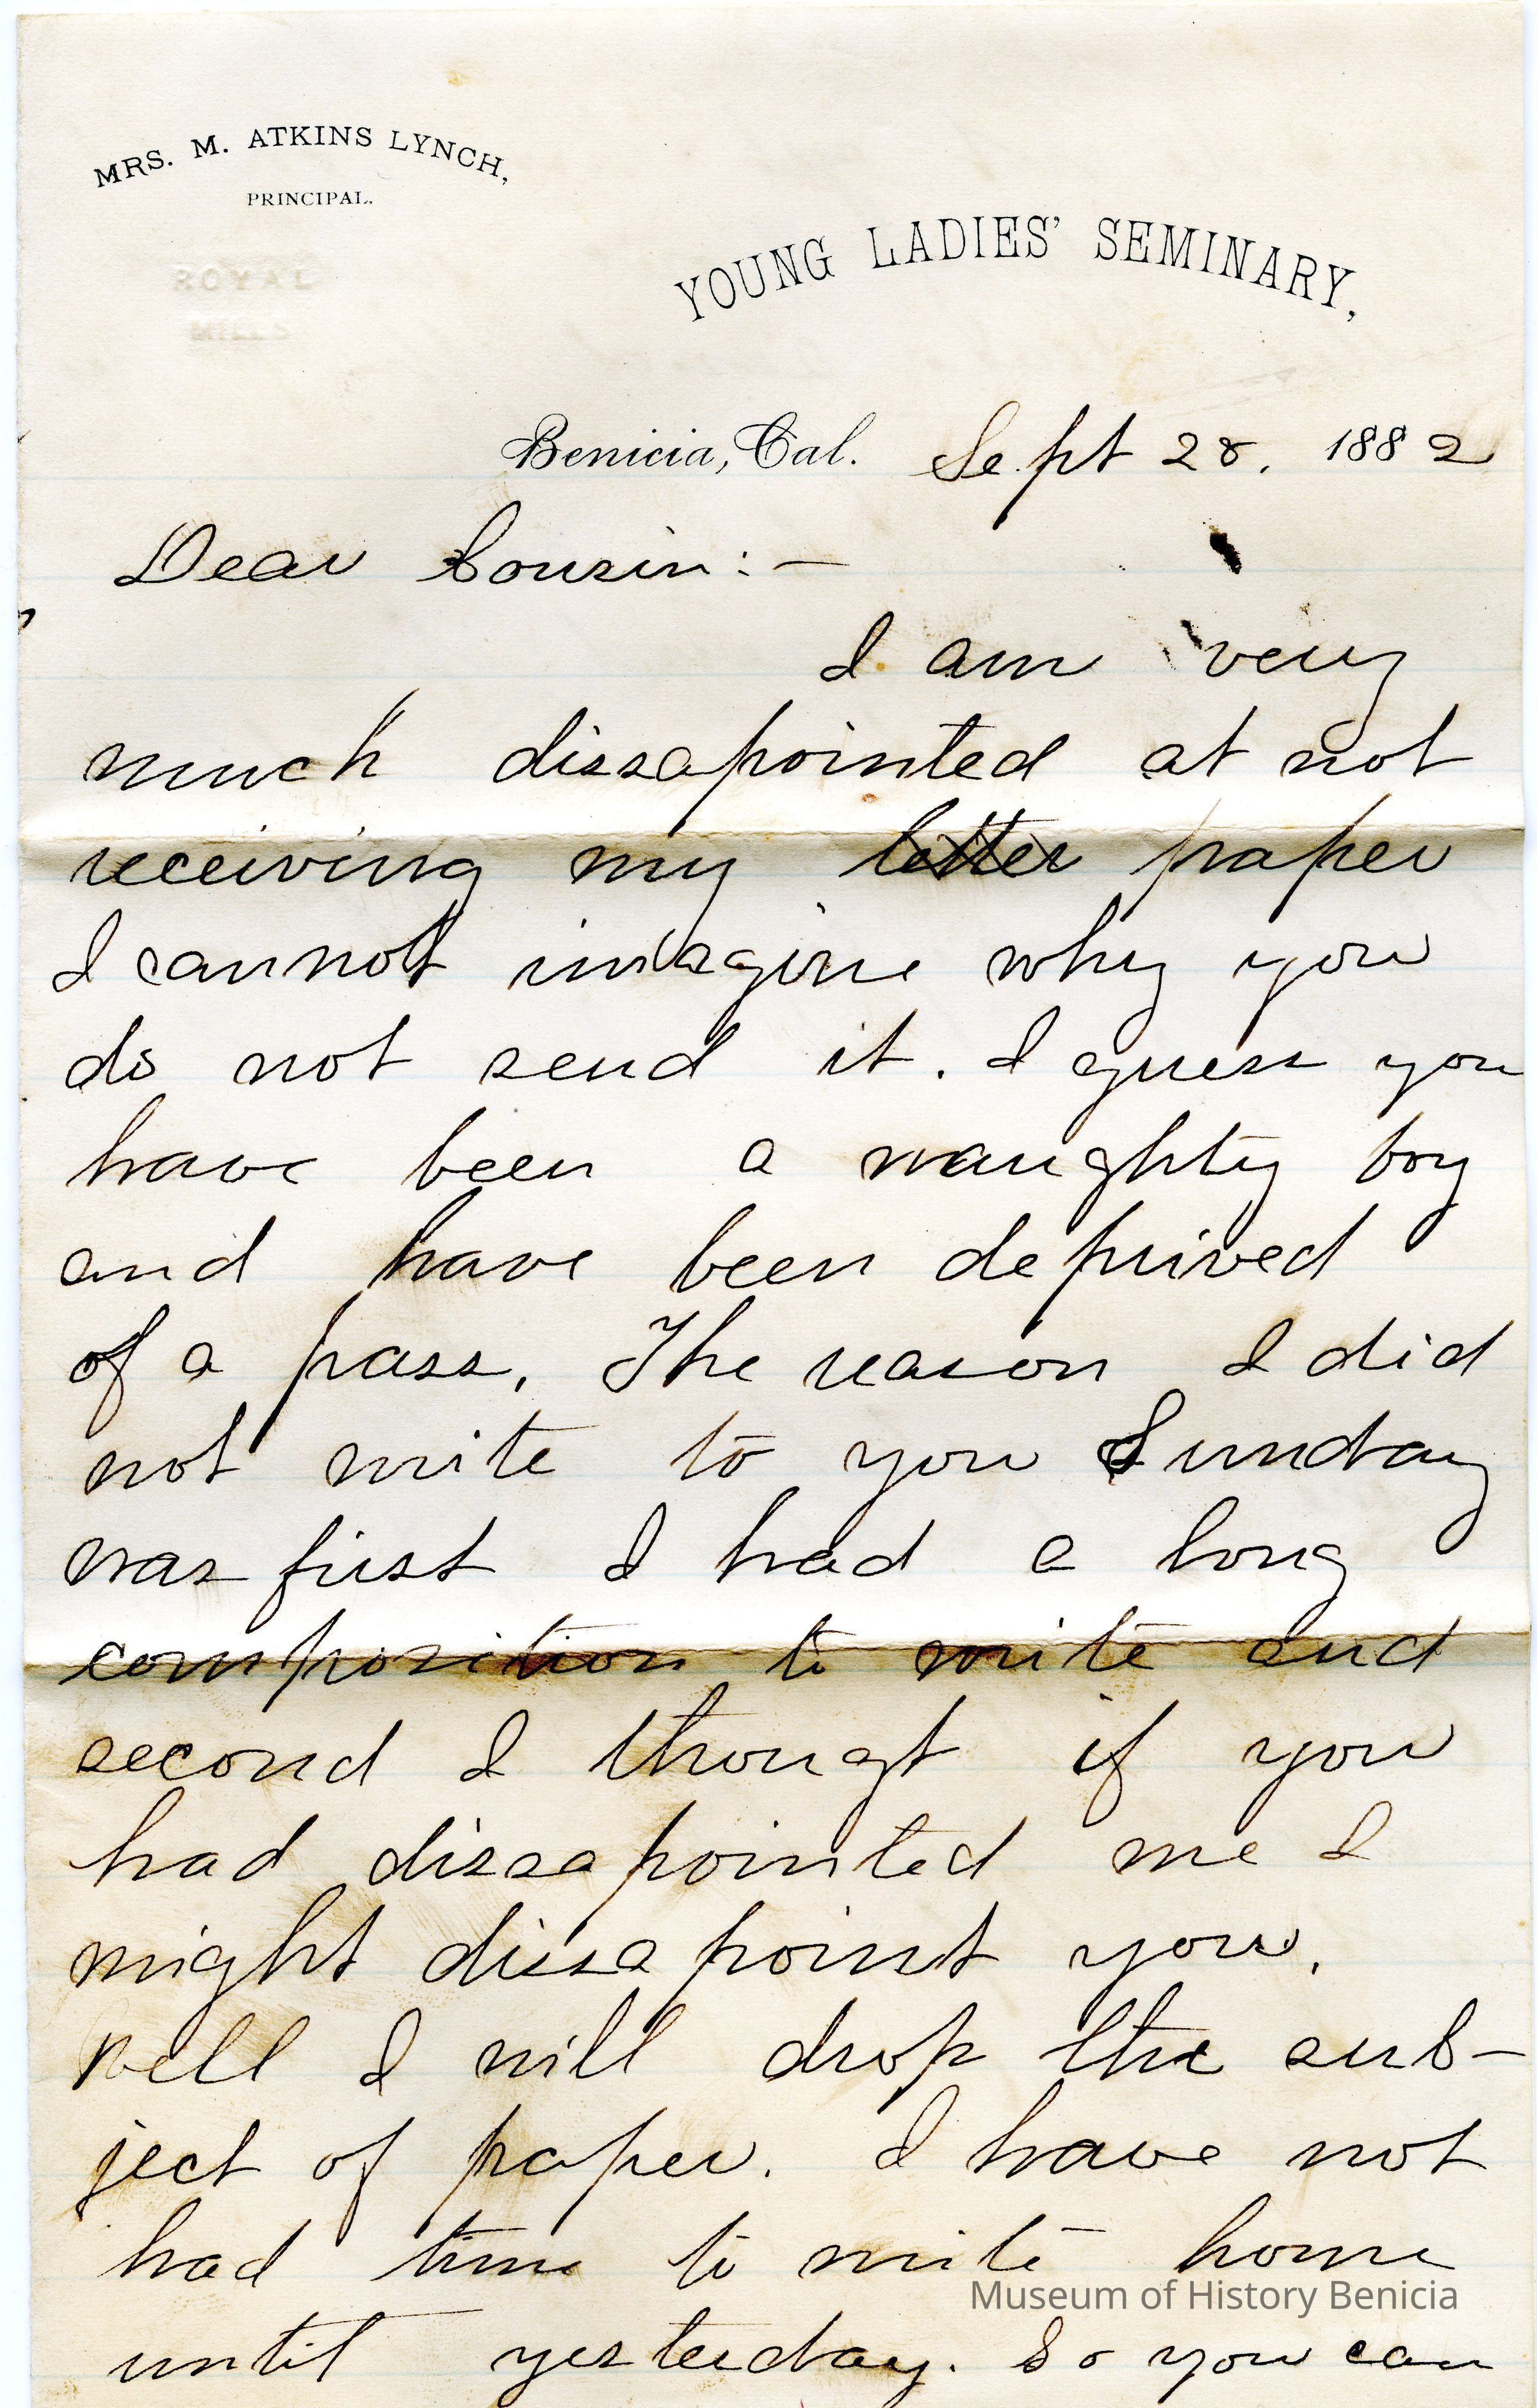 MRS. M. ATKINS LYNCH,
PRINCIPAL.
ROYAL
MILLS
YOUNG LADIES' SEMINARY,
Benicia, Cal. Sept 28, 1882
Dear Cousin:—
I am very
much dissapointed at not
receiving my letter paper
I cannot imagine why you
do not send it. I guess you
have been a naughty boy
and have been deprived
of a pass, The reason I did
not write to you Sunday
was first I had a long
composition to write and
second I thougt if you
had dissapointed me I
might dissapoint you.
Well I will drop the sub-
ject of paper. I have not
had time to write home
until yesterday. So you can
Museum of History Benicia